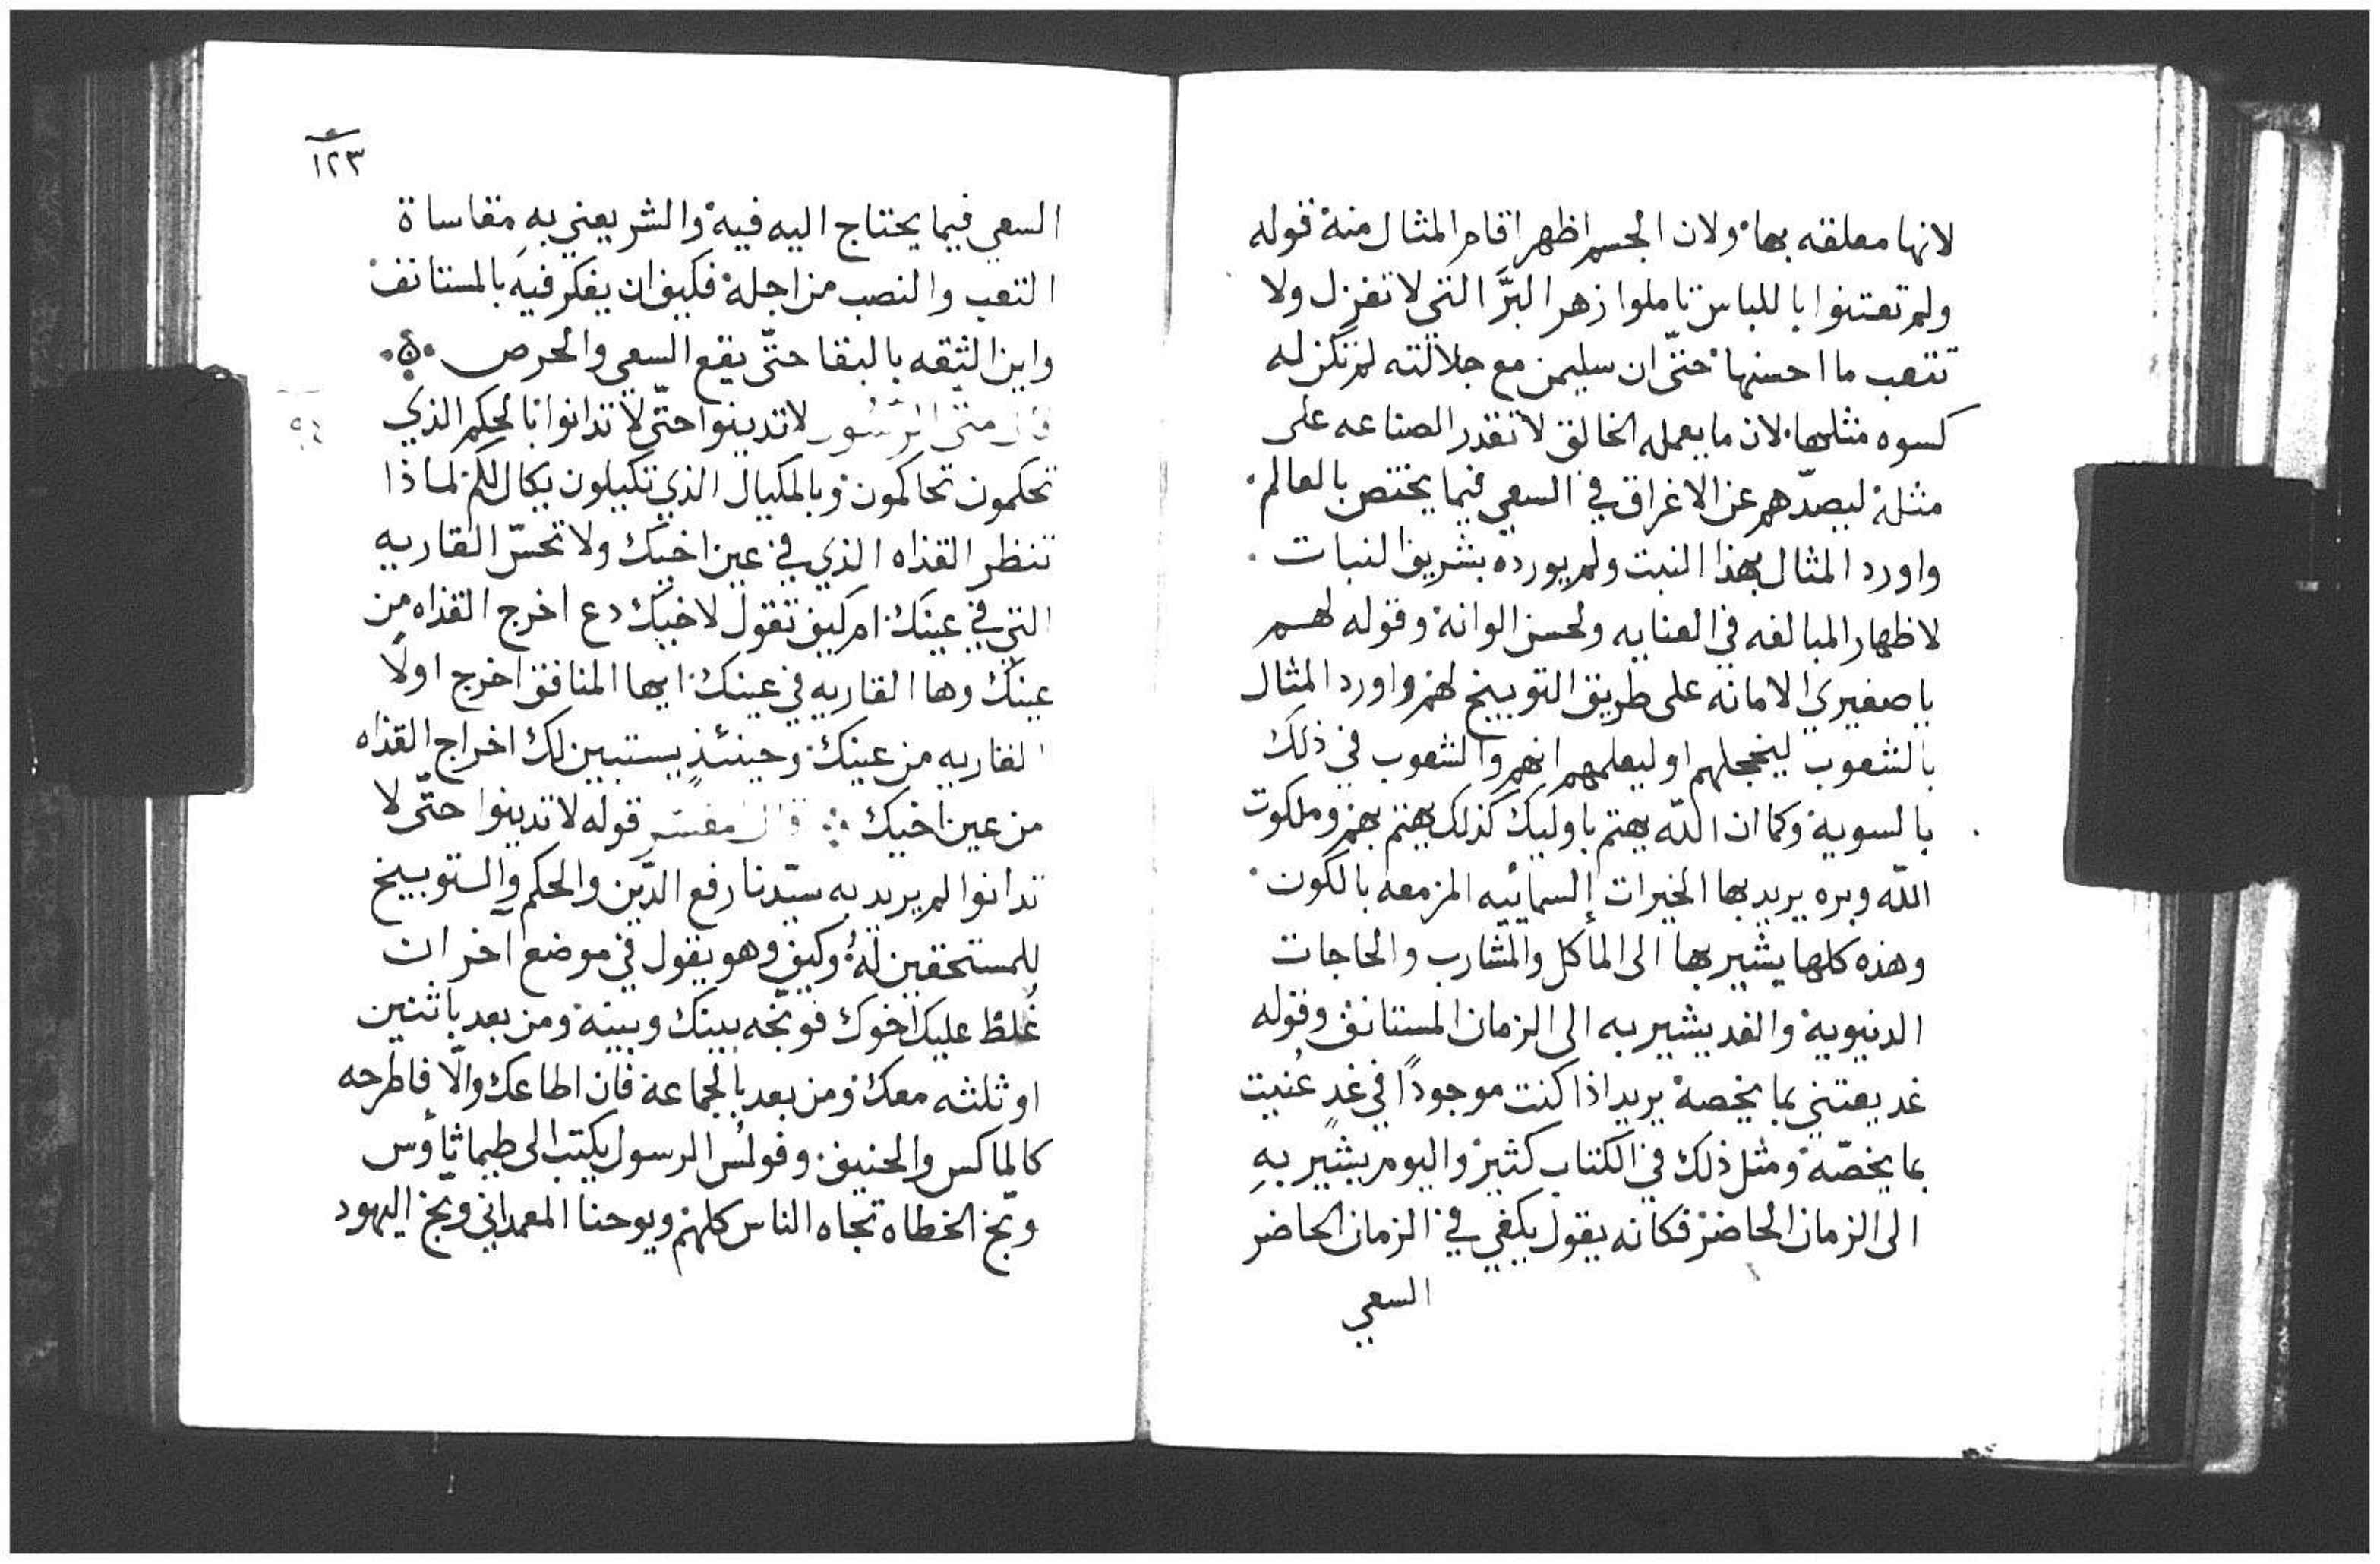 لانها معلقه بها ولان الجسم اظهر اقام المثال منه قوله
ولم تعتنوا باللباس تاملوا زهر البرّ التي لا تغزل ولا
تتعب ما احسنها حتّى ان سليمن مع جلالته لم تكن له
كسوه مثلها لان ما يعمله الخالق لا تقدر الصناعه على
مثله ليصدّهم عن الاغراق في السعي فيما يختص بالعالم
واورد المثال بهذا النبت ولم يورده بشريف النبات
لاظهار المبالغه في العنايه ولحسن الوانه وقوله لهم
يا صغيري الامانه على طريق التوبيخ لهم واورد المثال
بالشعوب ليخجلهم او ليعلمهم انهم والشعوب في ذلك
بالسوية وكما ان اللّه يهتم باوليك كذلك يهتم بهم وملكوت
اللّه وبره يريد بها الخيرات السمائيه المزمعه بالكون
وهذه كلها يشير بها الى المأكل والمشارب والحاجات
الدنيوية والغد يشير به الى الزمان المستانف وقوله
غد يعتني بما يخصه يريد اذا كنت موجودًا في غدٍ عُنيت
بما يخصّه ومثل ذلك في الكتاب كثير واليوم يشير بهِ
الى الزمان الحاضر فكانه يقول يكفي في الزمان الحاضر
السعي
١٢٣
السعي فيما يحتاج اليه فيه والشر يعني بهِ مقاساة
التعب والنصب من اجله فكيف ان يفكر فيهِ بالمستانف
واين الثقه بالبقا حتّى يقع السعي والحرص
قال متّى الرسول لا تدينوا حتّى لا تدانوا بالحكم الذي
تحكمون تحاكمون وبالمكيال الذي تكيلون يكال لكم لماذا
تنظر القذاه الذي في عين اخيك ولا تحسّ القاريه
التي في عينك ام كيف تقول لاخيك دع اخرج القذاه من
عينك وها القاريه في عينك ايها المنافق اخرج اولًا
القاريه من عينك وحينئذٍ يستبين لك اخراج القذاه
من عين اخيك قال مفسّر قوله لا تدينوا حتّى لا
تدانوا لم يريد به سيّدنا رفع الدّين والحكم والتوبيخ
للمستحقين لهُ وكيف وهو يقول في موضع آخر ان
غلط عليك اخوك فوبّخه بينك وبينه ومن بعد باثنين
او ثلثه معك ومن بعد بالجماعة فان اطاعك والّا فاطرحه
كالماكس والحنيف وفولُس الرسول يكتب الى طيماثاوس
وبّخ الخطاه تجاه الناس كلهم ويوحنا المعمداني وبّخ اليهود